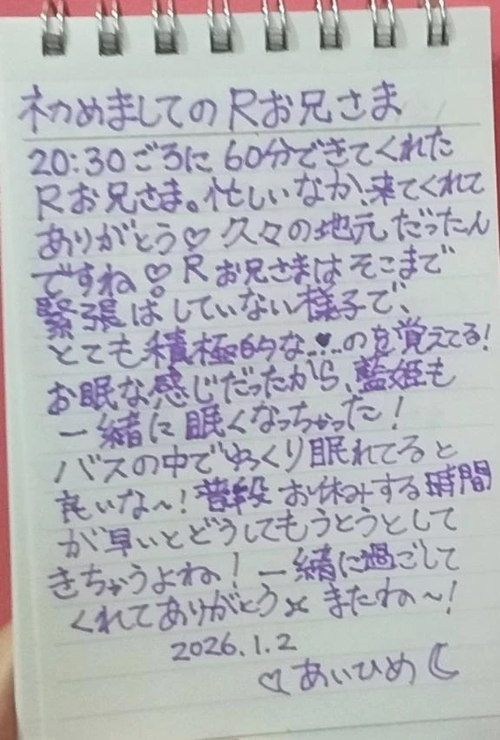 初めましてのRお兄さま
20:30ごろに60分できてくれた
Rお兄さま。忙しいなか、来てくれて
ありがとう♡久々の地元だったん
ですね♡Rお兄さまはそこまで
緊張はしていない様子で、
とても積極的な...♥...のを覚えてる!
お眠な感じだったから、藍姫も
一緒に眠くなっちゃった!
バスの中でゆっくり眠れてると
良いな〜!普段お休みする時間
が早いとどうしてもうとうとして
きちゃうよね!一緒に過ごして
くれてありがとう× またね〜!
2026.1.2
♡あいひめ☾